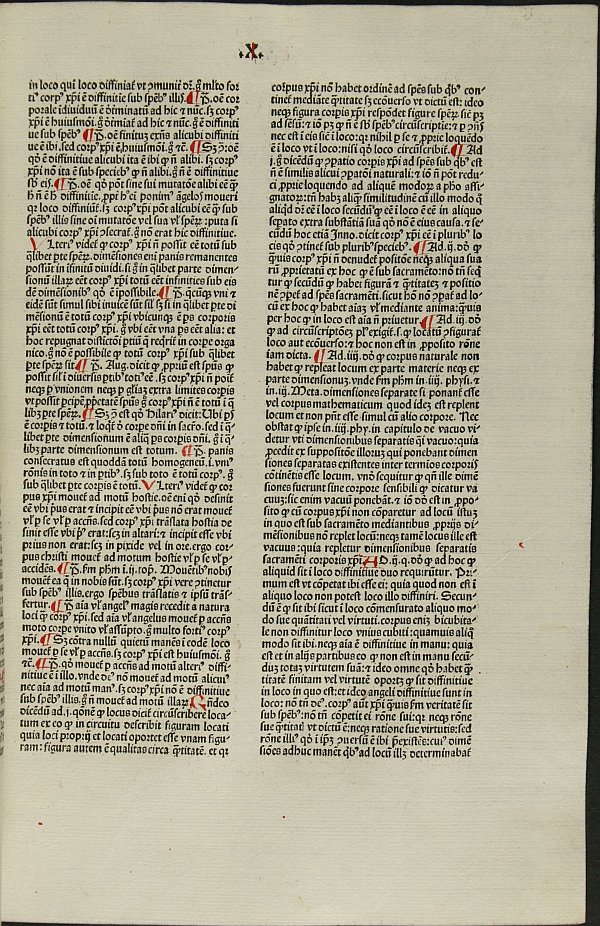 .X.
in loco qui loco diffiniat̄ vt ɔmunit̄ dr̄. g̊ mlto for
ti⁹ corp⁹ xp̄i ē diffinitie sub speb⁹ illis ¶ P. oē cor
porale idiuiduū ē determinatū ad hic ⁊ nūc. sꝫ corp⁹
xp̄i ē huiusmōi. g̊ determiat̄ ad hic ⁊ nūc. g̊ ē diffiniti
ue sub speb⁹ ¶ P. oē finitū exn̄s alicubi diffiniti
ue ē ibi. sed corp⁹ xp̄i ē huiusmōi. g̊ ⁊c̄. ¶ Sꝫ ɔ: oē
qd̄ ē diffinitiue alicubi ita ē ibi ꝙ n̄ alibi. sꝫ corp⁹
xp̄i nō ita ē sub specieb⁹ ꝙ n̄ alibi. g̊ n̄ ē diffinitiue
sb̄ eis. ¶ P. oē qd̄ pōt sine sui mutatōe alibi eē
qr loco diffiniunt̄. sꝫ corp⁹ xp̄i pōt alicubi eē ꝙ̄ sub
speb⁹ illis sine oi mutatōe vel sua vl̓ sperꝝ: puta si
alicubi corp⁹ xp̄i ɔsecrat̄. g̊ nō erat hic diffinitiue.
Vlteri⁹ videt̄ ꝙ corp⁹ xp̄i n̄ possit eē totū sub
qlibet pte sperꝝ. dimēsiones eni panis remanentes
possūt in ifinitū diuidi. si g̊ in qlibet parte dimen
sionū illaꝝ eēt corp⁹ xp̄i totū eēt infinities sub eis
dē dimēsionib⁹ qd̄ ē ipossibile. ¶ P. q̄cūqꝫ vni ⁊
eidē sūt simul sibi inuicē sūt sil̓. sꝫ si in qlibet pte di
mēsionū ē totū corp⁹ xp̄i vbicunqꝫ ē ps corporis
xp̄i eēt totū corp⁹ xp̄i. g̊ vbi eēt vna ps eēt alia: et
hoc repugnat distictōi ptiū q̄ reqrit̄ in corpe orga
nico. g̊ nō ē possibile ꝙ totū corp⁹ xp̄i sub qlibet
pte sperꝝ sit ¶ P. Aug. dicit ꝙ ꝓpriū est spūs ꝙ
possit sil̓ i diuersis ptib⁹ toti⁹ eē. sꝫ corp⁹ xp̄i n̄ poīt
neqꝫ p vnionem neqꝫ p gliaꝫ extra limites corpis
libꝫ pte sperꝝ. ¶ Sꝫ ɔ̄ est qd̄ Hilari⁹ dicit: Ubi ps̄
ē corpis ⁊ totū. ⁊ loqt̄ d̄ corpe dn̄i in sacr̄o. sed i q̄
libet pte dimensionum ē aliq̄ ps corpis dn̄i. g̊ i q̄
libꝫ parte dimensionum est totum. ¶ P. panis
consecratus est quoddā totum homogeneū. i. vni⁹
rōnis in toto ⁊ in ptib⁹. sꝫ sub toto ē totū corp⁹. g̊
sub qlibet pte corpis ē totū. Vlteri⁹ videt̄ ꝙ cor
pus xp̄i mouet̄ ad motū hostie. oē eni qd̄ desinit
eē vbi p̄us erat ⁊ incipit eē vbi p̄us nō erat mouet̄
vl̓ p se vl̓ p accn̄s. sed corp⁹ xp̄i trāslata hostia de
sinit esse vbi p̄⁹ erat: scꝫ in altari: ⁊ incipit esse vbi
prius non erat: scꝫ in pixide vel in ore. ergo cor
pus christi mouet̄ ad motum hostie vl̓ p se vl̓ p
accidēs. ¶ P. fm ph̄m i. ij. top. Mouētib⁹ nobis
mouēt̄ ea q̄ in nobis sūt. sꝫ corp⁹ xp̄i vere ɔtinetur
sub speb⁹ illis. ergo spebus translatis ⁊ ipsū trās
fertur. ¶ P. aīa vl̓ angel⁹ magis recedit a natura
loci ꝙ̄ corp⁹ xp̄i. sed aīa vl̓ angelus mouet̄ p accn̄s
moto corpe vnito vl̓ assūpto. g̊ multo forti⁹ corp⁹
xp̄i. ¶ Sꝫ cōtra nullū quietū manēs i eodē loco
mouet̄ p se vl̓ p accn̄s. sꝫ corp⁹ xp̄i est huiusmōi. g̊
⁊c̄. ¶ P. qd̄ mouet̄ p accn̄s ad motū alteri⁹ diffi
nitiue ē i illo. vnde de⁹ nō mouet̄ ad motū alicui⁹
nec aīa ad motū man⁹. sꝫ corp⁹ xp̄i nō ē diffinitiue
sub speb⁹ illis. g̊ n̄ mouet̄ ad motū illaꝝ. Rn̄deo
dicēdū ad. i. qōnē ꝙ locus dicit̄ circūscribere loca
tum ex eo ꝙ in circuitu describit figuram locati
quia loci proprij et locati oportet esse vnam figu
ram: figura autem ē qualitas circa q̄titatē. et qr
corpus xp̄i nō habet ordinē ad spēs sub qb⁹ con
tinet̄ mediāte q̄titate sꝫ ecōuerso vt dictū est: ideo
neqꝫ figura corpis xp̄i respōdet figure sperꝝ sic pꝫ
nec est i eis sic ī loco: qr nihil p se ⁊ ꝓprie loquēdo
ē i loco vt i loco: nisi qd̄ loco circūscribit̄. ¶ Ad
.i. g̊ dicēdū ꝙ ɔpatio corpis xp̄i ad spēs sub qb⁹ est
n̄ ē similis alicui ɔpatōni naturali: ⁊ iō n̄ pōt redu
ci ꝓprie loquendo ad aliquē modorꝝ a ph̄o assi
gnatorꝝ: tn̄ habꝫ aliq̄ similitudinē cū illo modo q̄
aliqd dr̄ eē i loco secūdū ꝙ eē ī loco ē eē in aliquo
sepato extra substātiā suā qd̄ nō ē eius causa. ⁊ se
cūdū hoc etiā Inno. dicit corp⁹ xp̄i eē i plurib⁹ lo
cis qd̄ ɔtinet̄ sub plurib⁹ specieb⁹. ¶ Ad. ij. dd̄ ꝙ
q̄uis corp⁹ xp̄i n̄ denudet̄ positōe neqꝫ aliqua sua
rū ꝓprietatū ex hoc ꝙ ē sub sacramēto: nō tn̄ seq
tur ꝙ secūdū ꝙ habet figurā ⁊ q̄titatē ⁊ positio
nē ɔpet̄ ad spēs sacramēti. sicut hō nō ɔpat̄ ad lo
cū ex hoc ꝙ habet aīaꝫ vl̓ mediante anima: quis
per hoc ꝙ in loco est aīa n̄ priuetur. ¶ Ad. iij. dd̄
ꝙ ad circūscriptōeꝫ pl⁹ exigit̄. s. ꝙ locatū ɔfigurat̄
loco aut ecōuerso: ⁊ hoc non est in ꝓposito rōne
iam dicta. ¶ Ad. iiij. dd̄ ꝙ corpus naturale non
habet ꝙ repleat locum ex parte materie neqꝫ ex
parte dimensionuꝫ. vnde fm ph̄m in. iiij. physi. ⁊
in. iij. Meta. dimensiones separate si ponant̄ esse
vel corpus mathematicum quod ideꝫ est replent
locum et non pn̄t esse simul cū alio corpore. Nec
obstat ꝙ ipse in. iiij. phy. in capitulo de vacuo vi
detur vti dimensionibus separatis qi vacuo: quia
ꝓcedit ex suppositōe illoruꝫ qui ponebant dimen
siones separatas existentes inter termios corporis
cōtinētis esse locum. vn̄ sequitur ꝙ n̄ ille dimen
siones fuerunt sine corpore sensibili ꝙ dicatur va
cuuꝫ: sic enim vacuū ponebāt. ⁊ iō nō est in ꝓpo
sito ꝙ cū corpus xp̄i non cōparetur ad locū istuꝫ
in quo est sub sacramēto mediantibus ꝓprijs di
mēsionibus nō replet locū: neqꝫ tamē locus ille est
vacuus: quia repletur dimēsionibus separatis
sacramēti corporis xp̄i. AD. ij. q. dd̄ ꝙ ad hoc ꝙ
aliquid sit i loco diffinitiue duo requirūtur. Pri
mum est vt cōpetat ibi esse ei: quia quod non est i
aliquo loco non potest loco illo diffiniri. Secun
dū ē ꝙ sit ibi sicut i loco cōmensurato aliquo mo
do sue quātitati vel virtuti. corpus eniꝫ bicubita
le non diffinitur loco vnius cubiti: quamuis aliq
modo sit ibi. neqꝫ aīa ē diffinitiue in manu: quia
est et in alijs partibus eo ꝙ non est in manu secū
duꝫ totaꝫ virtutem suā: ⁊ ideo omne qd̄ habet q̄
titatē finitam vel virtutē oportꝫ ꝙ sit diffinitiue
in loco in quo est: et ideo angeli diffinitiue sunt in
loco: nō tn̄ de⁹. corp⁹ aūt xp̄i quis fm veritatē sit
sub speb⁹: nō tn̄ cōpetit ei rōne sui: qr neqꝫ rōne
sue q̄titat̄ vt dictū ē: neqꝫ ratione sue virtutis: sed
rōne illi⁹ qd̄ i ip̄ꝫ ɔuersū ē ibi p̄existēs: cui⁹ dimē
siōes adhuc manēt qb⁹ ad locū illꝫ determinabat̄